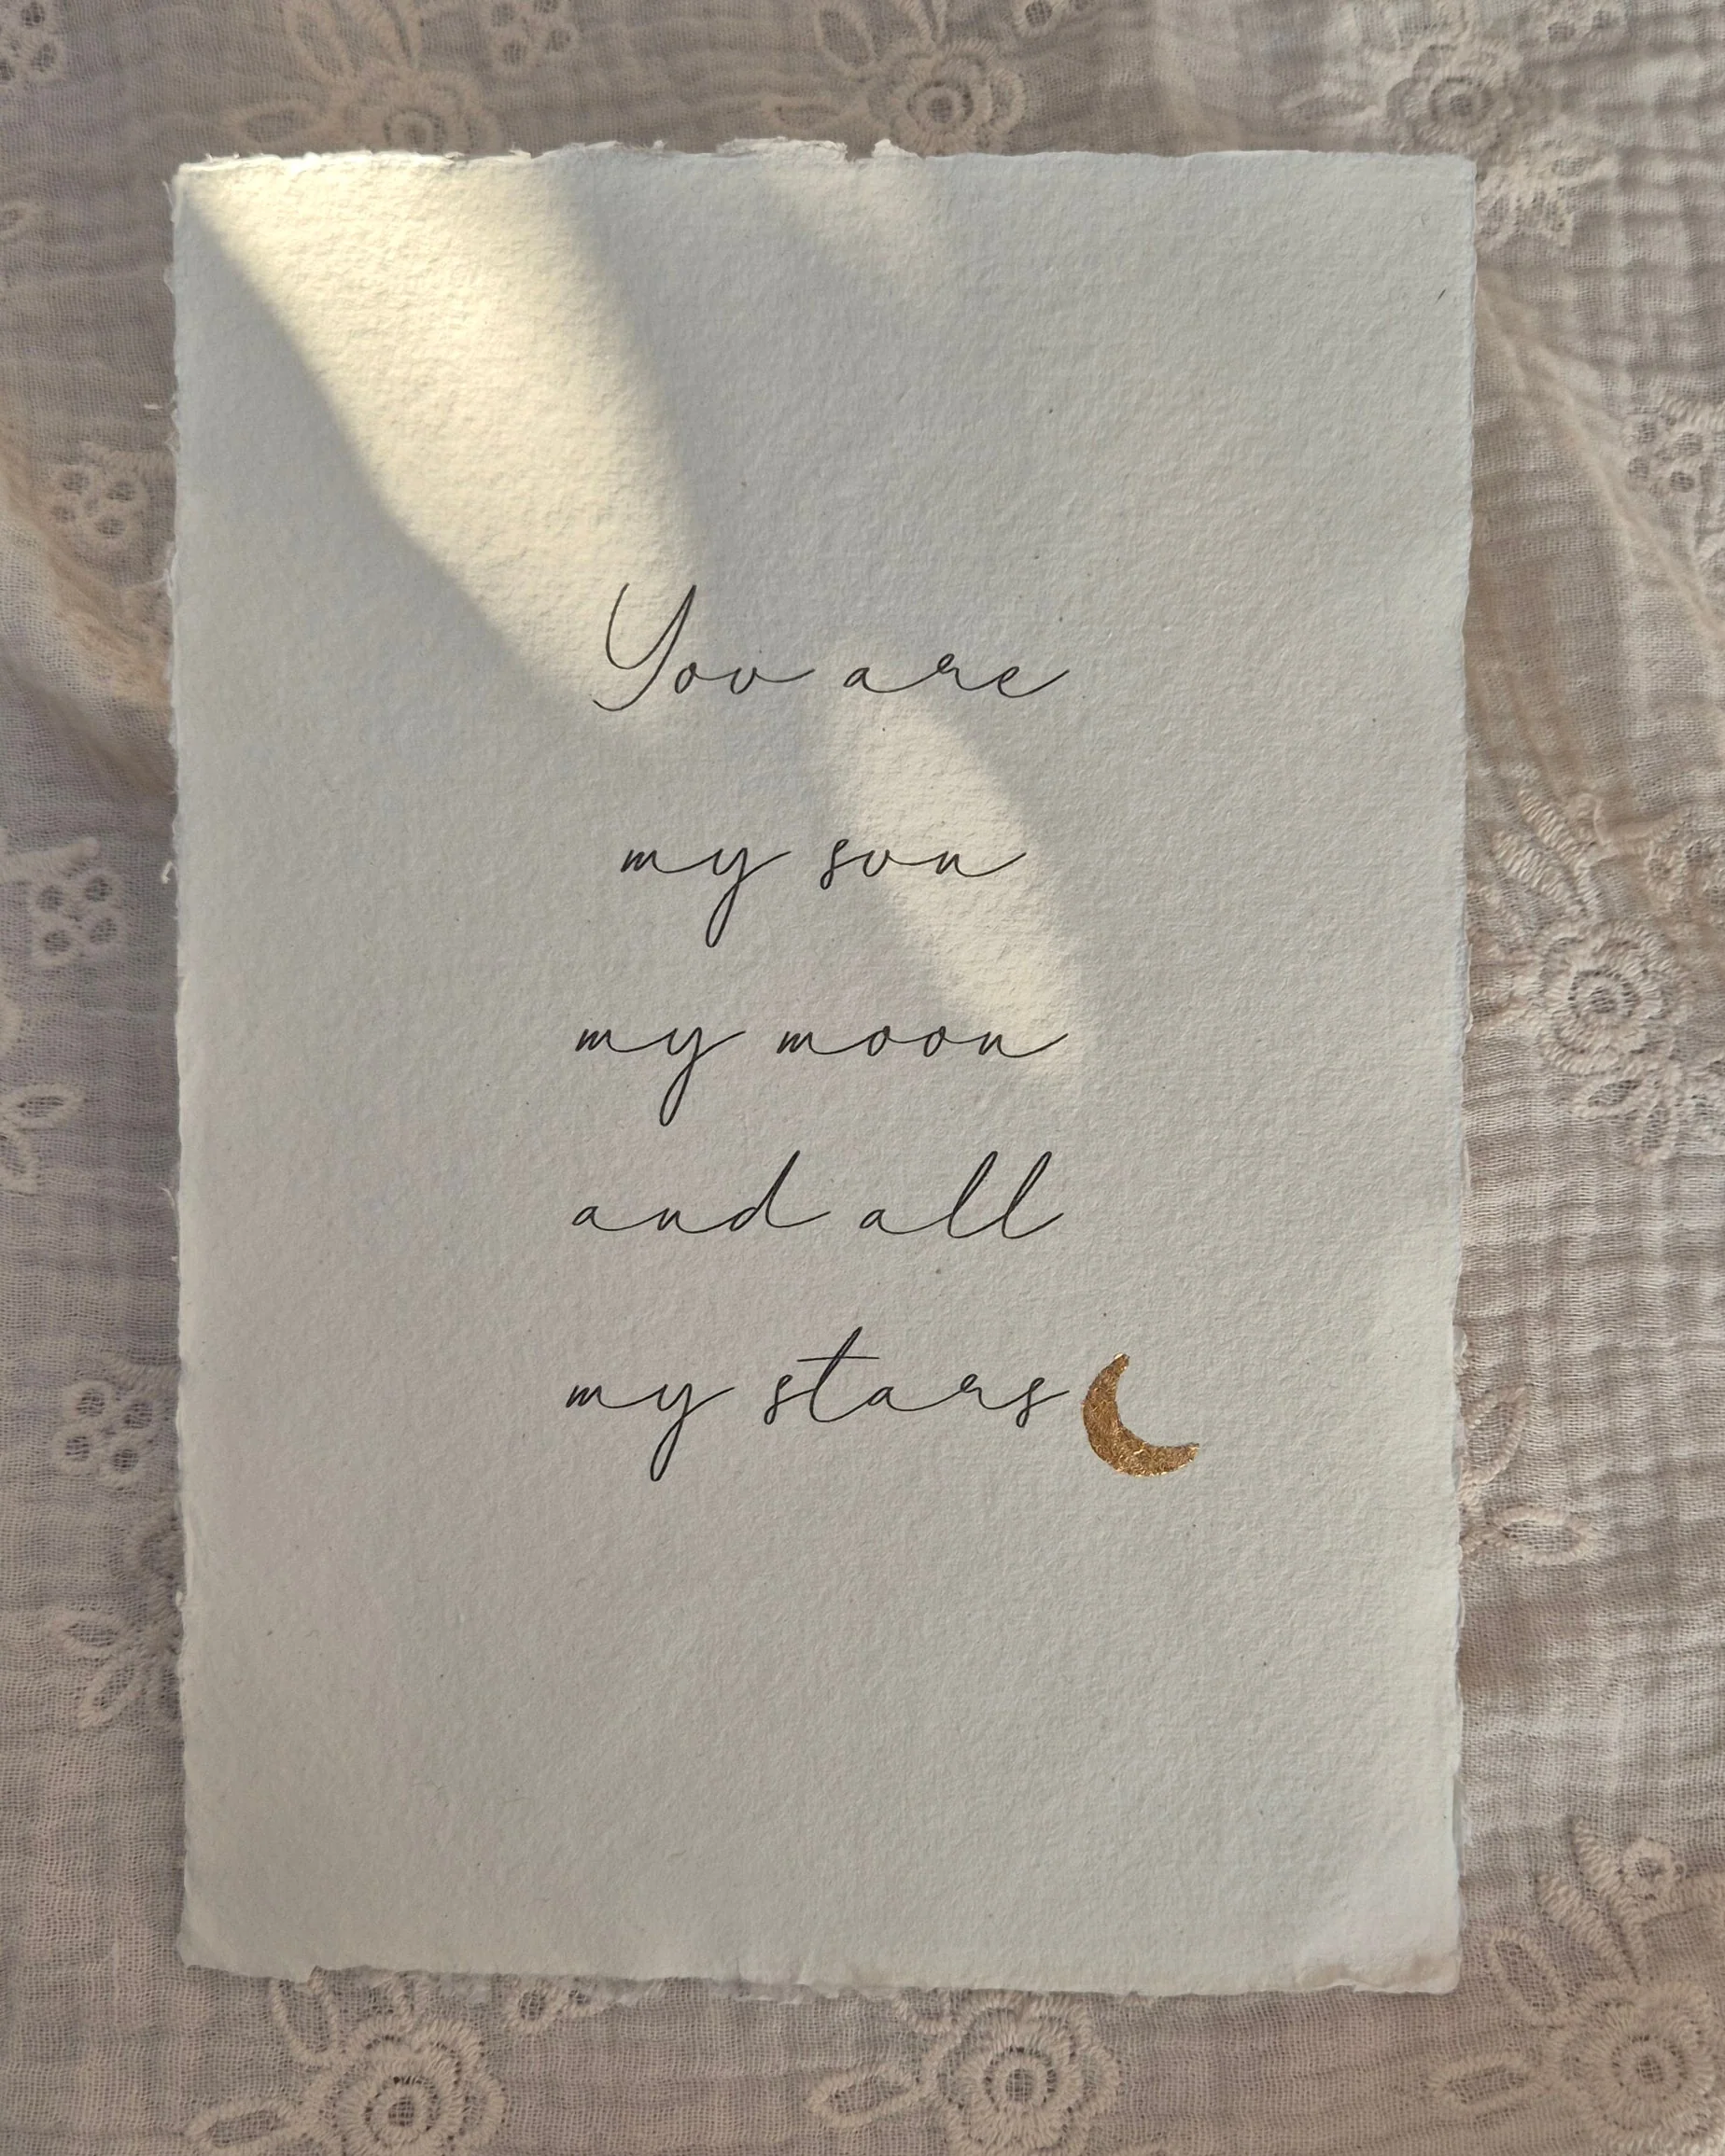 You are
my sun
my moon
and all
my stars